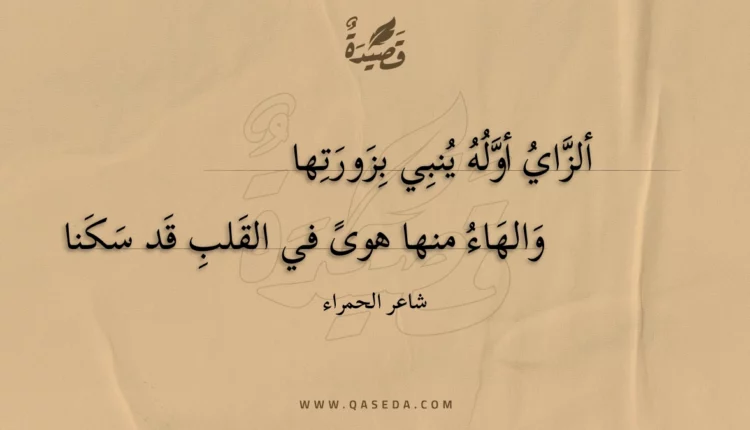 قَصِيْدَةٌ
ألزَّايُ أوَّلُهُ يُنبِي بِزَورَتِها
وَالهَاءُ منها هوىً في القَلبِ قَد سَكَنا
شاعر الحمراء
WWW.QASEDA.COM